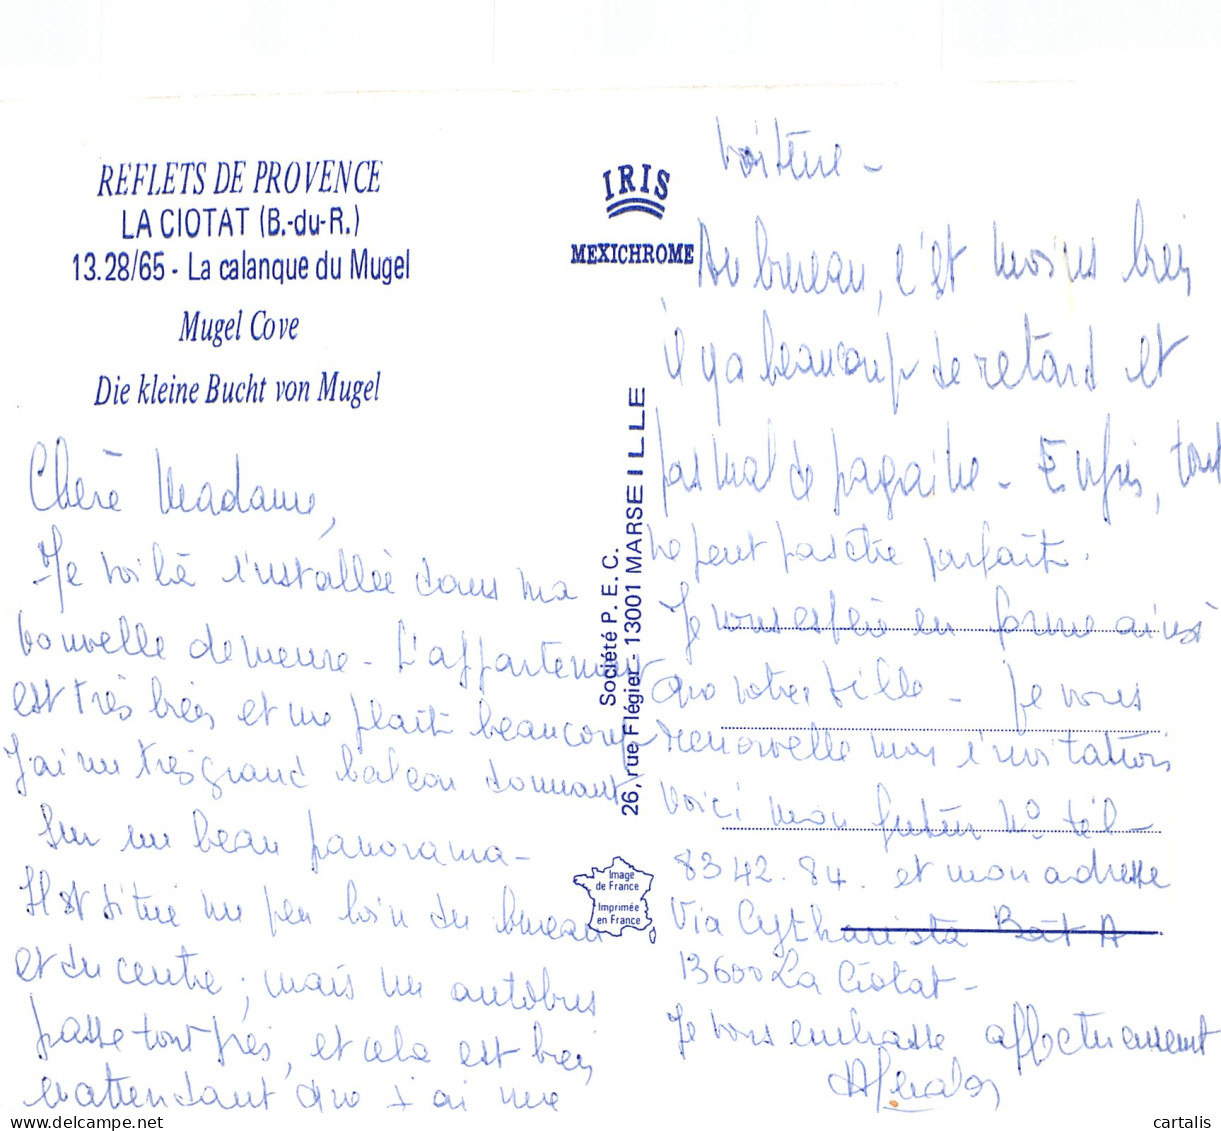 REFLETS DE PROVENCE
LA CIOTAT (B.-du-R.)
13.28/65 - La calanque du Mugel
Mugel Cove
Die kleine Bucht von Mugel
Chère Madame,
Me voilà installée dans ma
nouvelle demeure - L'appartement
est très bien et me plaît beaucoup
J'ai un très grand balcon donnant
sur un beau panorama -
Il est situé un peu loin du bureau
et du centre ; mais un autobus
passe tout près, et cela est bien
en attendant que j'ai une
IRIS
MEXICHROME
Société P. E. C.
26, rue Flégier - 13001 MARSEILLE
Image
de France
Imprimée
en France
voiture -
Au bureau, c'est moins bien
il y a beaucoup de retard et
pas mal de pagaille - Enfin, tout
ne peut pas être parfait.
Je vous espère en forme ainsi
que votre fille - Je vous
renouvelle mon invitation
voici mon futur No tél -
83 42. 84. et mon adresse
Via Cytharista Bât A
13600 La Ciotat -
Je vous embrasse affectueusement
cartalis